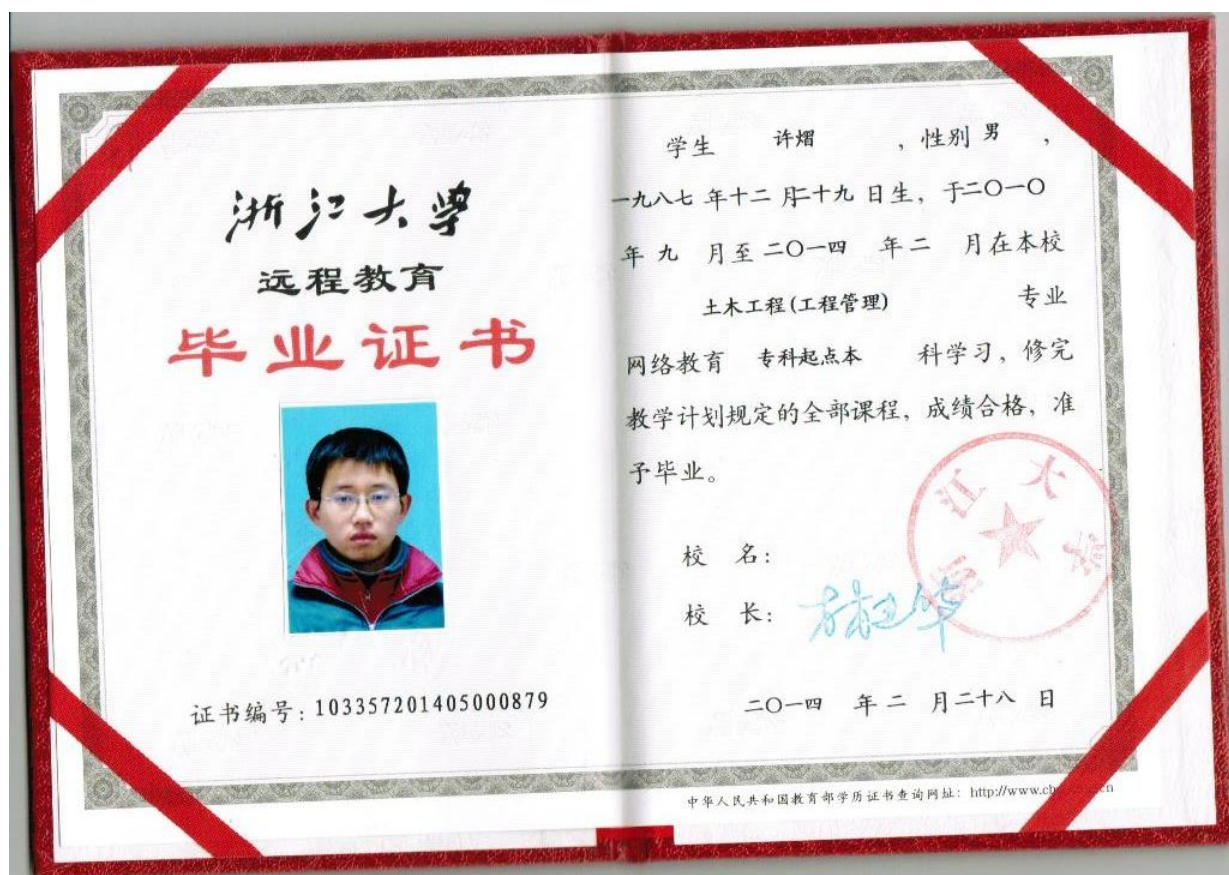 浙江大学
远程教育
毕业证书
证书编号:103357201405000879
学生 许熠 ,性别 男 ,
一九八七 年十二 月二十九 日生,于二〇一〇
年 九 月至 二〇一四 年 二 月在本校
土木工程(工程管理) 专业
网络教育 专科起点本 科学习,修完
教学计划规定的全部课程,成绩合格,准
予毕业。
校 名:
校 长:
二〇一四 年 二 月二十八 日
中华人民共和国教育部学历证书查询网址:http://www.ch
浙江大学